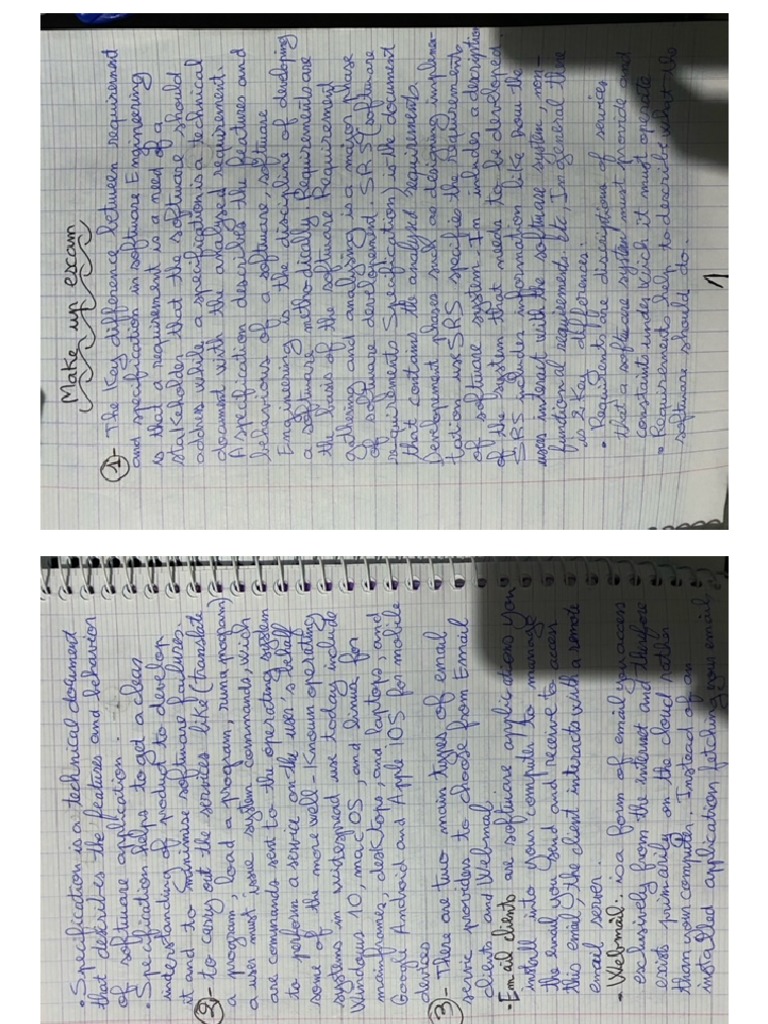 Make up exam
1- The Key difference between requirement
and specification in software Engineering
is that a requirement is a need of a
stakeholder that the software should
address while a specification is a technical
document with the analysed requirement.
A specification describes the features and
behaviors of a software, software
Engineering is the discipline of developing
a software methodically Requirements are
the basis of the software Requirement
gathering and analysing is a major phase
of software developement. SRS (software
requirements Specification) is the document
that contains the analysed requirements
Development phases such as designing implemen-
tation use SRS specifies the Requirements
of software system. It includes a description
of the system that needs to be developed
SRS includes information like how the
users interact with the software system, non-
functional requirements etc, In general there
is 2 Key differences:
• Requirements are discriptions of services
that a software system must provide and
constants under which it must operate
• Requirements help to describe what the
software should do.
1
• Specification is a technical document
that describes the features and behavior
of software application.
• Specification helps to get a clear
understanding of product to develop
it and to minimize software failures.
2- to carry out the services like (translate
a program, load a program, run a program)
a user must issue system commands, which
are commands sent to the operating system
to perform a service on the user's behalf
some of the more well-Known operating
systems in widespread use today include
Windows 10, mac OS, and linux for
mainframes, desktops, and laptops, and
Google Android and Apple iOS for mobile
devices
3- There are two main types of email
service providers to choose from Email
clients and Webmail
• Email clients are software applications you
install into your computer to manage
the email you send and receive to access
this email, the client interacts with a remote
email server.
• Webmail: is a form of email you access
exclusively from the internet and therefore
exists primarily on the cloud rather
than your computer. Instead of an
installed application fetching your email